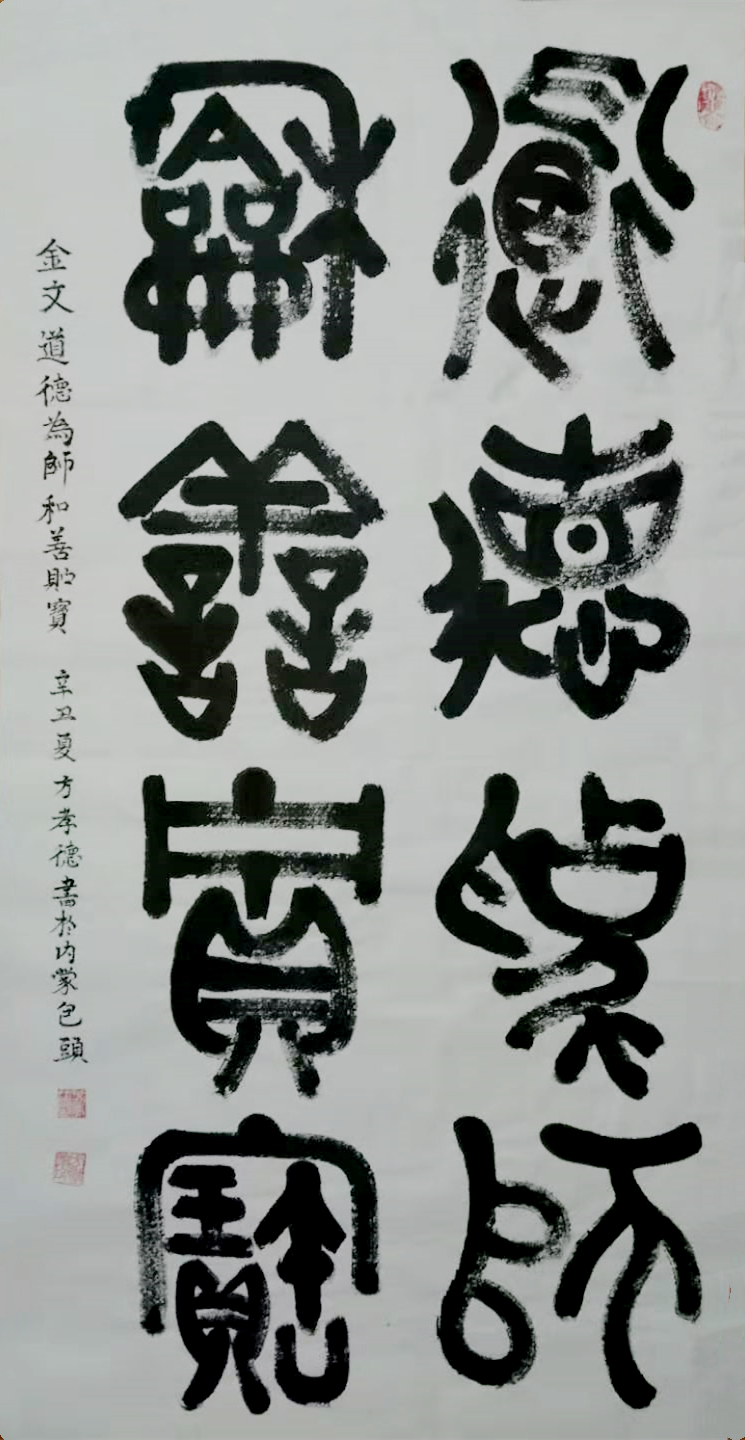 道德為師
龢譱貯寶
金文道德為師和善貯寶 辛丑夏方孝德書於内蒙包頭